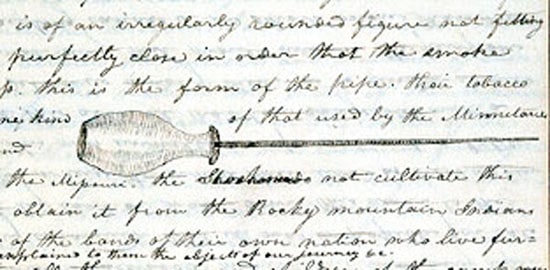 is of an irregularly rounded figure not fitting
purfectly close in order that the smoke
p. this is the form of the pipe. their tobacco
kind of that used by the Minnetares
the Missouri. the Shoshonees do not cultivate this
obtain it from the Rocky mountain Indians
of the bands of their own nation who live fur-
explained to them the objects of our journey &c.